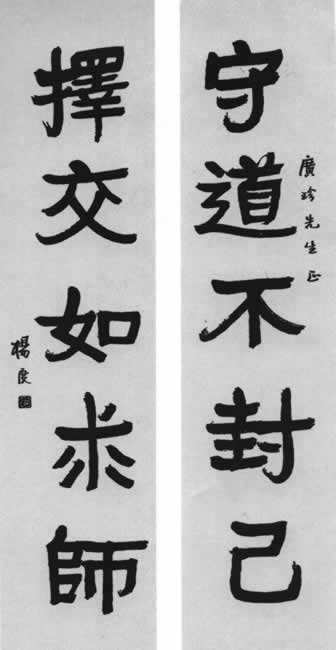 守道不封己
廣珍先生正
擇交如求師
楊度